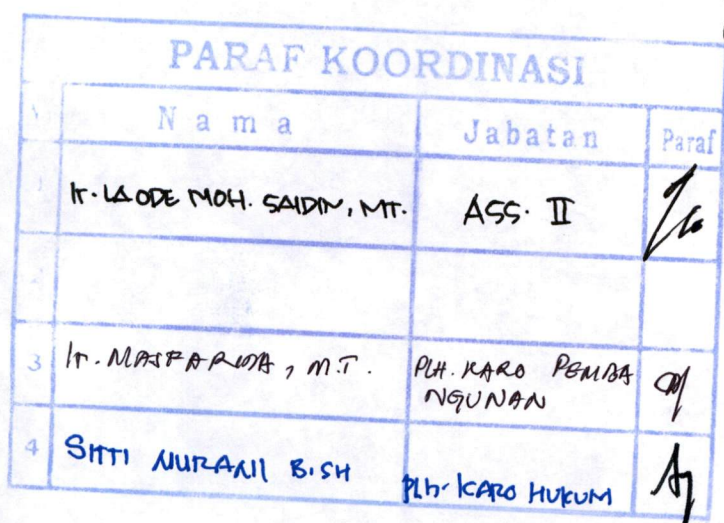 PARAF KOORDINASI
N a m a Jabatan Paraf
Ir. LA ODE MOH. SAIDIN, MT. ASS. II
3 Ir. MASFARIDA, M.T. PLH. KARO PEMBA
NGUNAN
4 SITTI NURANI B. SH PLH. KARO HUKUM